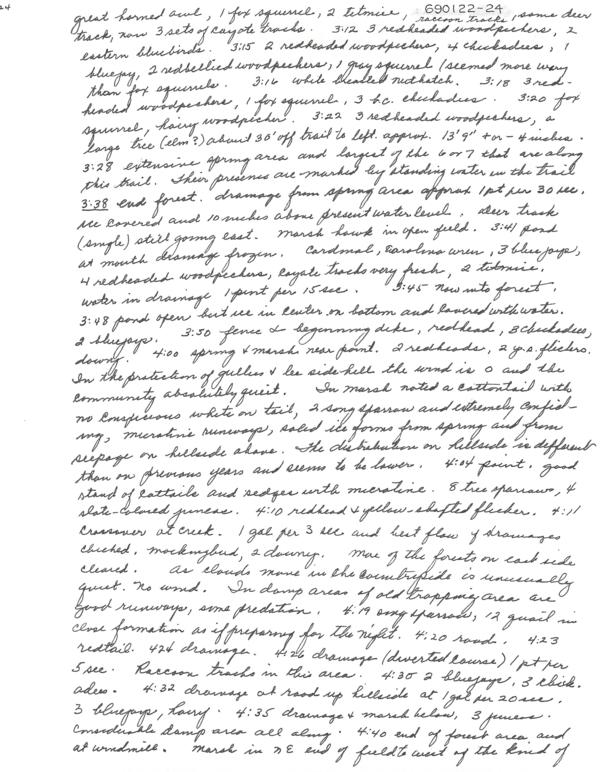 24
690122-24
great horned owl, 1 fox squirrel, 2 titmice, raccoon tracks, some deer
track, now 3 sets of coyote tracks. 3:12 3 redheaded woodpeckers, 2
eastern bluebirds. 3:15 2 redheaded woodpeckers, 4 chickadees, 1
bluejay, 2 redbellied woodpeckers, 1 gray squirrel (seemed more wary
than fox squirrels. 3:16 white breasted nuthatch. 3:18 3 red-
headed woodpeckers, 1 fox squirrel, 3 b.c. chickadees. 3:20 fox
squirrel, hairy woodpecker. 3:22 3 redheaded woodpeckers, a
large tree (elm?) about 35' off trail to left. approx. 13'9" + or - 4 inches.
3:28 extensive spring area and largest of the 6 or 7 that are along
this trail. Their presence are marked by standing water in the trail
3:38 end forest. drainage from spring area approx 1 pt per 30 sec.
ice covered and 10 inches above present water level. deer track
(single) still going east. Marsh hawk in open field. 3:41 pond
at mouth drainage frozen. Cardinal, Carolina wren, 3 bluejays,
4 redheaded woodpeckers, coyote tracks very fresh, 2 titmice.
water in drainage 1 pint per 15 sec. 3:45 now into forest.
3:48 pond open but ice in center on bottom and covered with water.
2 bluejays. 3:50 fence & beginning dike, redhead, 8 chickadees,
downy. 4:00 spring & marsh near point. 2 redheads, 2 y.s. flickers.
In the protection of gullies & lee side hill the wind is 0 and the
community absolutely quiet. In marsh noted a cottontail with
no conspicuous white on tail, 2 song sparrow and extremely confid-
ing, microtine runways, solid ice forms from spring and from
seepage on hillside above. The distribution on hillside is different
than on previous years and seems to be lower. 4:04 point. good
stand of cattails and sedges with microtine. 8 tree sparrows, 4
slate-colored juncos. 4:10 redhead & yellow-shafted flicker. 4:11
crossover at creek. 1 gal per 3 sec and best flow of drainages
checked, mockingbird, 2 downy. More of the forests on east side
cleared. As clouds move in the countryside is unusually
quiet. No wind. In damp areas of old trapping area are
good runways, some predation. 4:19 song sparrow, 12 quail in
close formation as if preparing for the night. 4:20 road. 4:23
redtail. 424 drainage. 4:26 drainage (diverted course) 1 pt per
5 sec. Raccoon tracks in this area. 4:30 2 bluejays, 3 chick-
adees. 4:32 drainage at road up hillside at 1 gal per 20 sec.
3 bluejays, hairy. 4:35 drainage & marsh below, 3 juncos.
Considerable damp area all along. 4:40 end of forest area and
at windmill. Marsh in NE end of field to west of the bend of